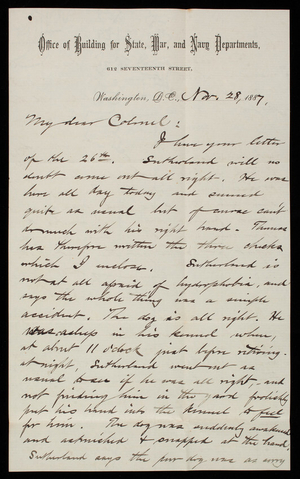 Office of Building for State, War, and Navy Departments,
612 SEVENTEENTH STREET,
Washington, D.C., Nov. 28, 1887.
My dear Colonel:
I have your letter
of the 26th. Sutherland will no
doubt come out all right. He was
here all day today and seemed
quite as usual but of course can't
do much with his right hand.
has therefore written the three checks
which I enclose. Sutherland is
not at all afraid of hydrophobia, and
says the whole thing was a simple
accident. The dog is all right. He
was asleep in his kennel when,
at about 11 o'clock just before retiring
at night, Sutherland went out as
usual to see if he was all right, and
not finding him in the yard foolishly
put his hand into the kennel to feel
for him. The dog was suddenly awakened
and astonished & snapped at the hand,
Sutherland says the poor dog was as sorry